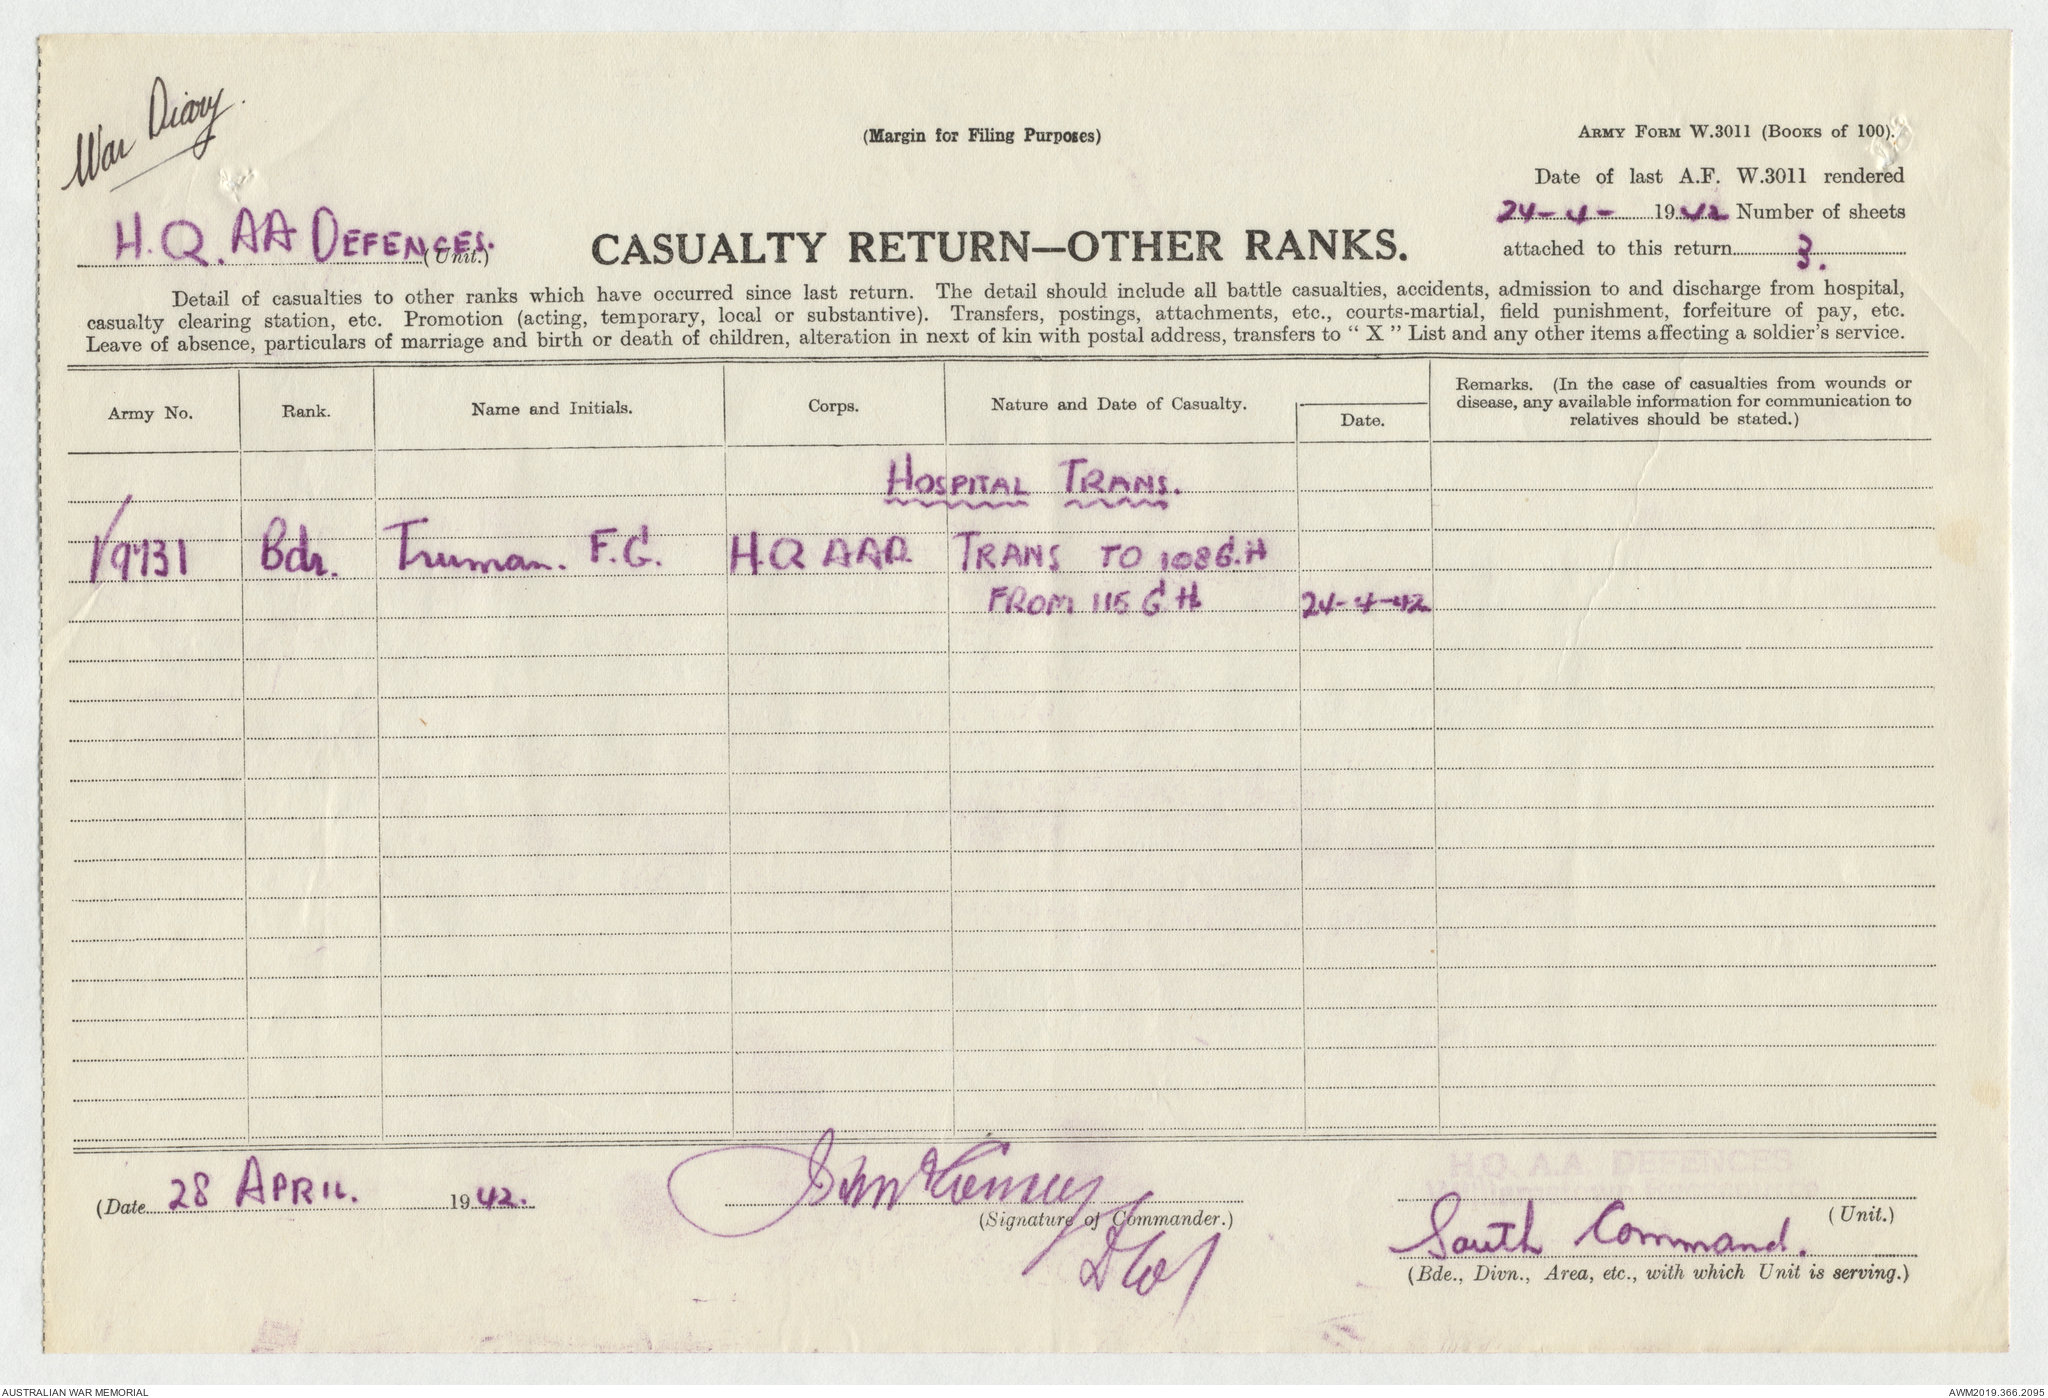 War Diary.
(Margin for Filing Purposes)
ARMY FORM W.3011 (Books of 100).
Date of last A.F. W.3011 rendered
24-4- 1942 Number of sheets
attached to this return 3.
H.Q. AA DEFENCES. (Unit.)
CASUALTY RETURN—OTHER RANKS.
Detail of casualties to other ranks which have occurred since last return. The detail should include all battle casualties, accidents, admission to and discharge from hospital,
casualty clearing station, etc. Promotion (acting, temporary, local or substantive). Transfers, postings, attachments, etc., courts-martial, field punishment, forfeiture of pay, etc.
Leave of absence, particulars of marriage and birth or death of children, alteration in next of kin with postal address, transfers to “ X ” List and any other items affecting a soldier's service.
Army No. Rank. Name and Initials. Corps. Nature and Date of Casualty. Date.
Remarks. (In the case of casualties from wounds or
disease, any available information for communication to
relatives should be stated.)
HOSPITAL TRANS.
1/9731 Bdr. Truman. F.G. H.Q AAD. TRANS TO 108 G.H
FROM 115 G H 24-4-42
(Date 28 APRIL. 1942.
(Signature of Commander.)
H.Q. A.A. DEFENCES
(Unit.)
South Command.
(Bde., Divn., Area, etc., with which Unit is serving.)
AUSTRALIAN WAR MEMORIAL
AWM2019.366.2095